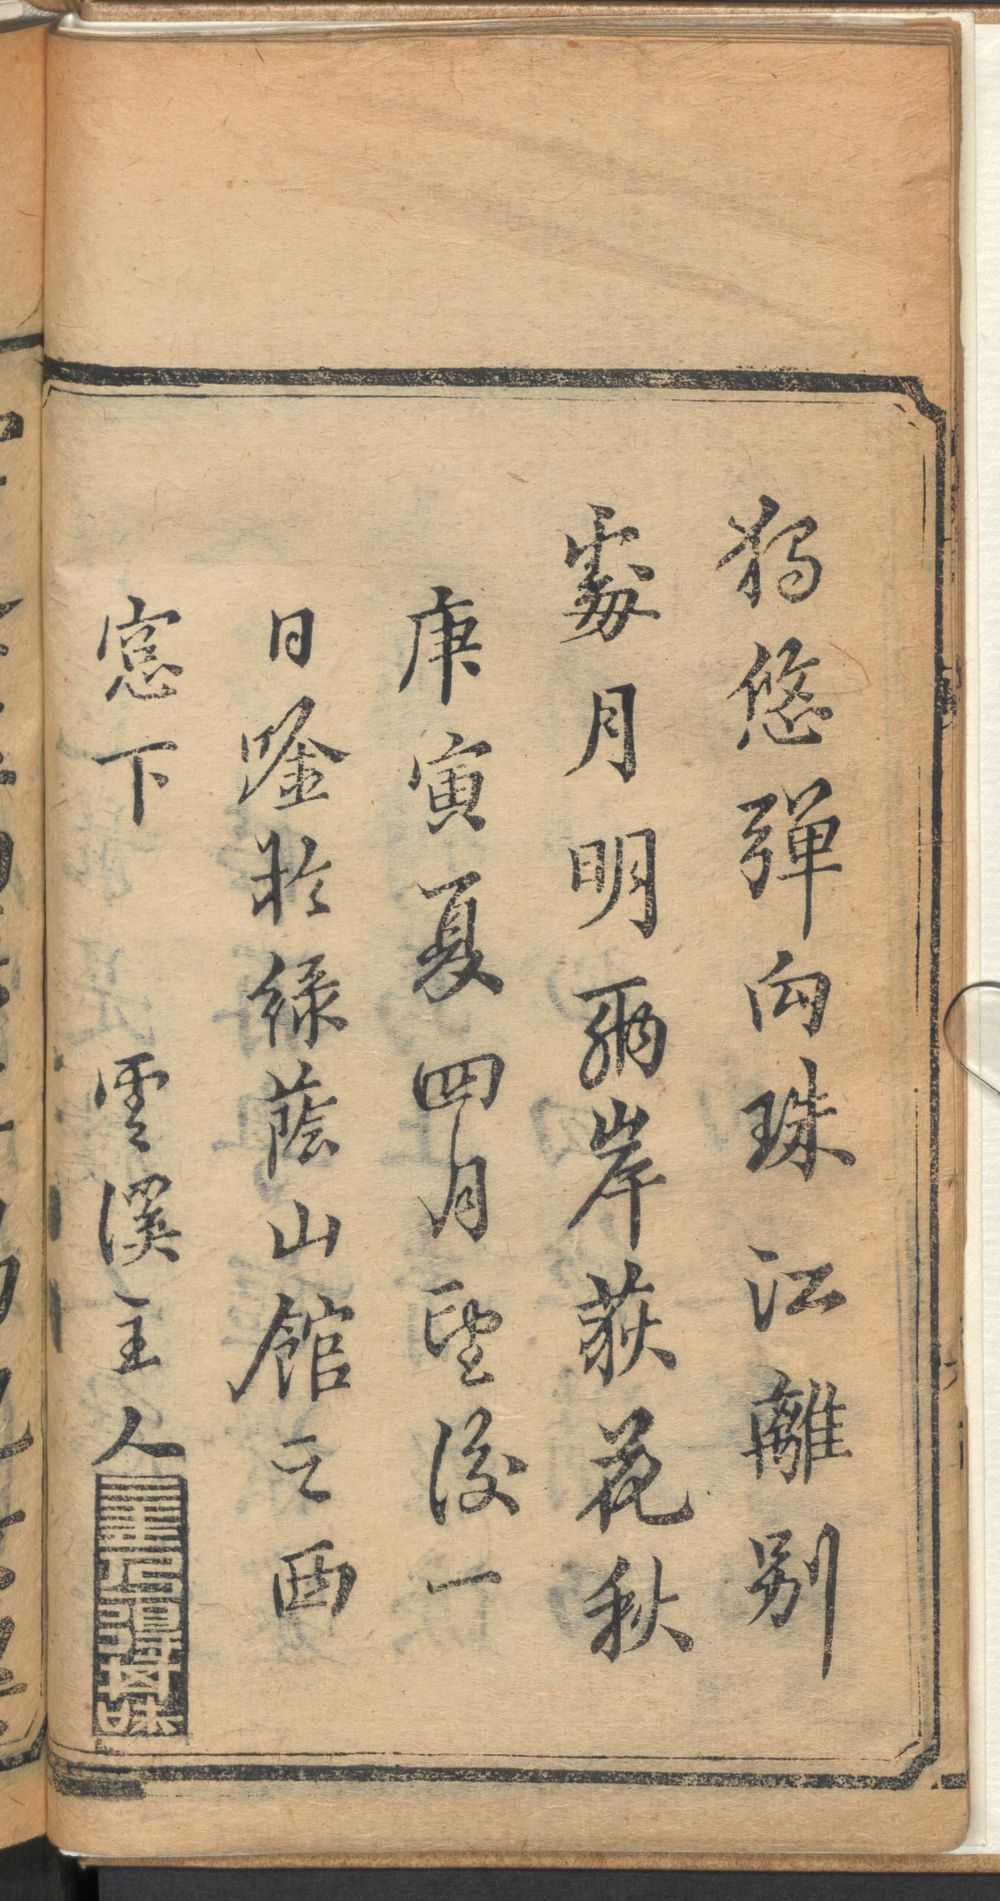 獨悠彈向珠江離别
處月明兩岸荻花秋
庚寅夏四月望後一
日唫於綠蔭山館之西
窓下　雲溪主人